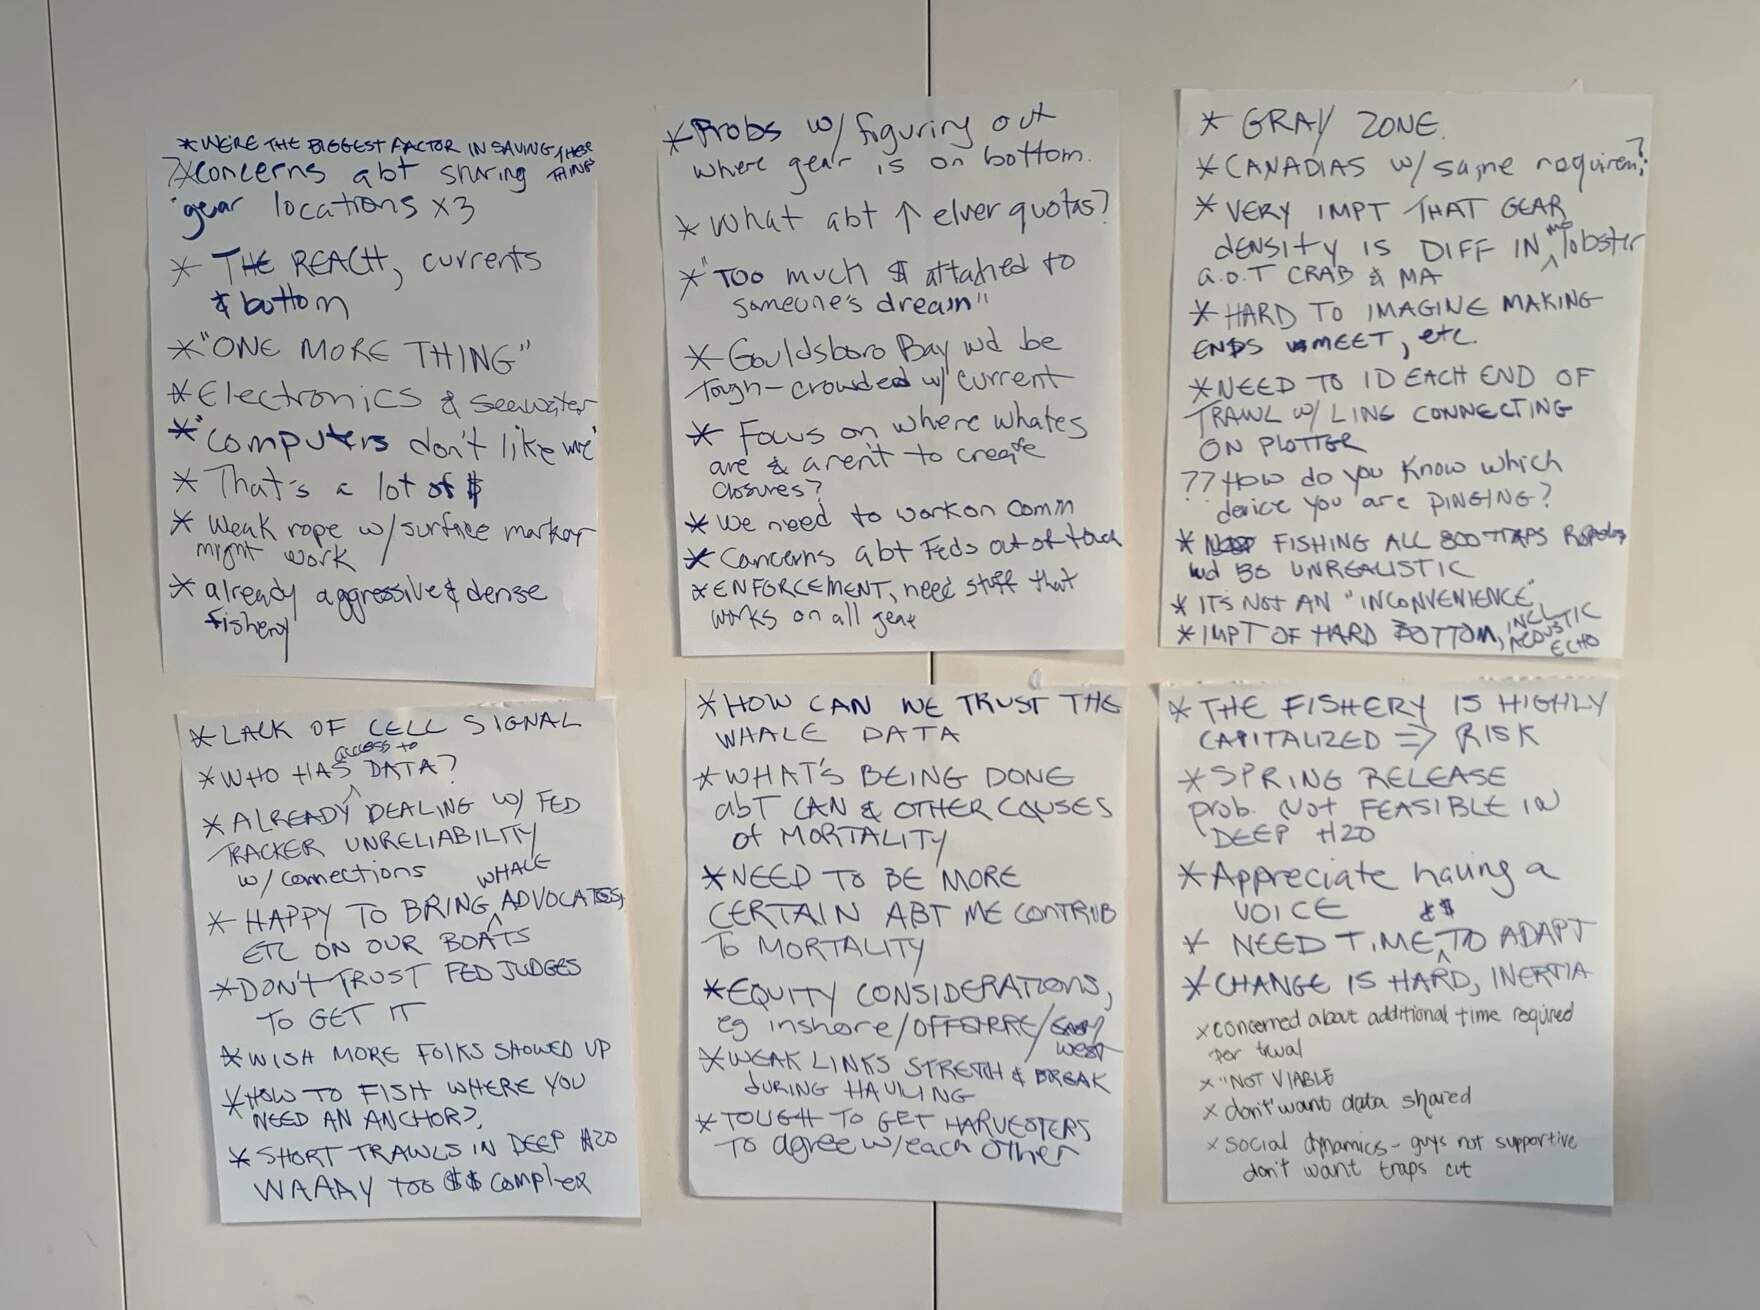 * WE'RE THE BIGGEST FACTOR IN SAVING THESE THINGS
?* Concerns abt sharing
gear locations x3
* THE REACH, currents
& bottom
* "ONE MORE THING"
* Electronics & seawater
* "computers don't like me"
* That's a lot of $
* Weak rope w/surface marker
might work
* already aggressive & dense
fishery
* Probs w/ figuring out
where gear is on bottom.
* What abt ↑ elver quotas?
* "TOO much $ attached to
someone's dream"
* Gouldsboro Bay wd be
tough - crowded w/ current
* Focus on where whales
are & aren't to create
closures?
* We need to work on comm
* Concerns abt Feds out of touch
* ENFORCEMENT, need stuff that
works on all gear
* GRAY ZONE.
* CANADIAS w/ same requirem?
* VERY IMPT THAT GEAR
DENSITY IS DIFF IN ME lobster
a.o.T CRAB & MA
* HARD TO IMAGINE MAKING
ENDS MEET, etc.
* NEED TO ID EACH END OF
TRAWL W/ LINE CONNECTING
ON PLOTTER
?? How do you know which
device you are PINGING?
* FISHING ALL 800 TRAPS
wd BE UNREALISTIC
* IT'S NOT AN "INCONVENIENCE"
* IMPT OF HARD BOTTOM, INCL
ACOUSTIC
ECHO
* LACK OF CELL SIGNAL
* WHO HAS access to DATA?
* ALREADY DEALING W/ FED
TRACKER UNRELIABILITY
w/ connections
* HAPPY TO BRING WHALE ADVOCATES,
ETC ON OUR BOATS
* DON'T TRUST FED JUDGES
TO GET IT
* WISH MORE FOLKS SHOWED UP
* HOW TO FISH WHERE YOU
NEED AN ANCHOR?
* SHORT TRAWLS IN DEEP H2O
WAAAY TOO $$ complex
* HOW CAN WE TRUST THE
WHALE DATA
* WHAT'S BEING DONE
abT CAN & OTHER CAUSES
of MORTALITY
* NEED TO BE MORE
CERTAIN ABT ME CONTRIB
TO MORTALITY
* EQUITY CONSIDERATIONS,
eg inshore/OFFSHRRE/
west
* WEAK LINKS STRETCH & BREAK
DURING HAULING
* TOUGH TO GET HARVESTERS
TO agree w/each other
* THE FISHERY IS HIGHLY
CAPITALIZED => RISK
* SPRING RELEASE
prob. Not FEASIBLE IN
DEEP H2O
* Appreciate having a
VOICE
* NEED TIME & $ TO ADAPT
* CHANGE IS HARD, INERTIA
x concerned about additional time required
per trwal
x "NOT VIABLE
x don't want data shared
x social dynamics - guys not supportive
don't want traps cut